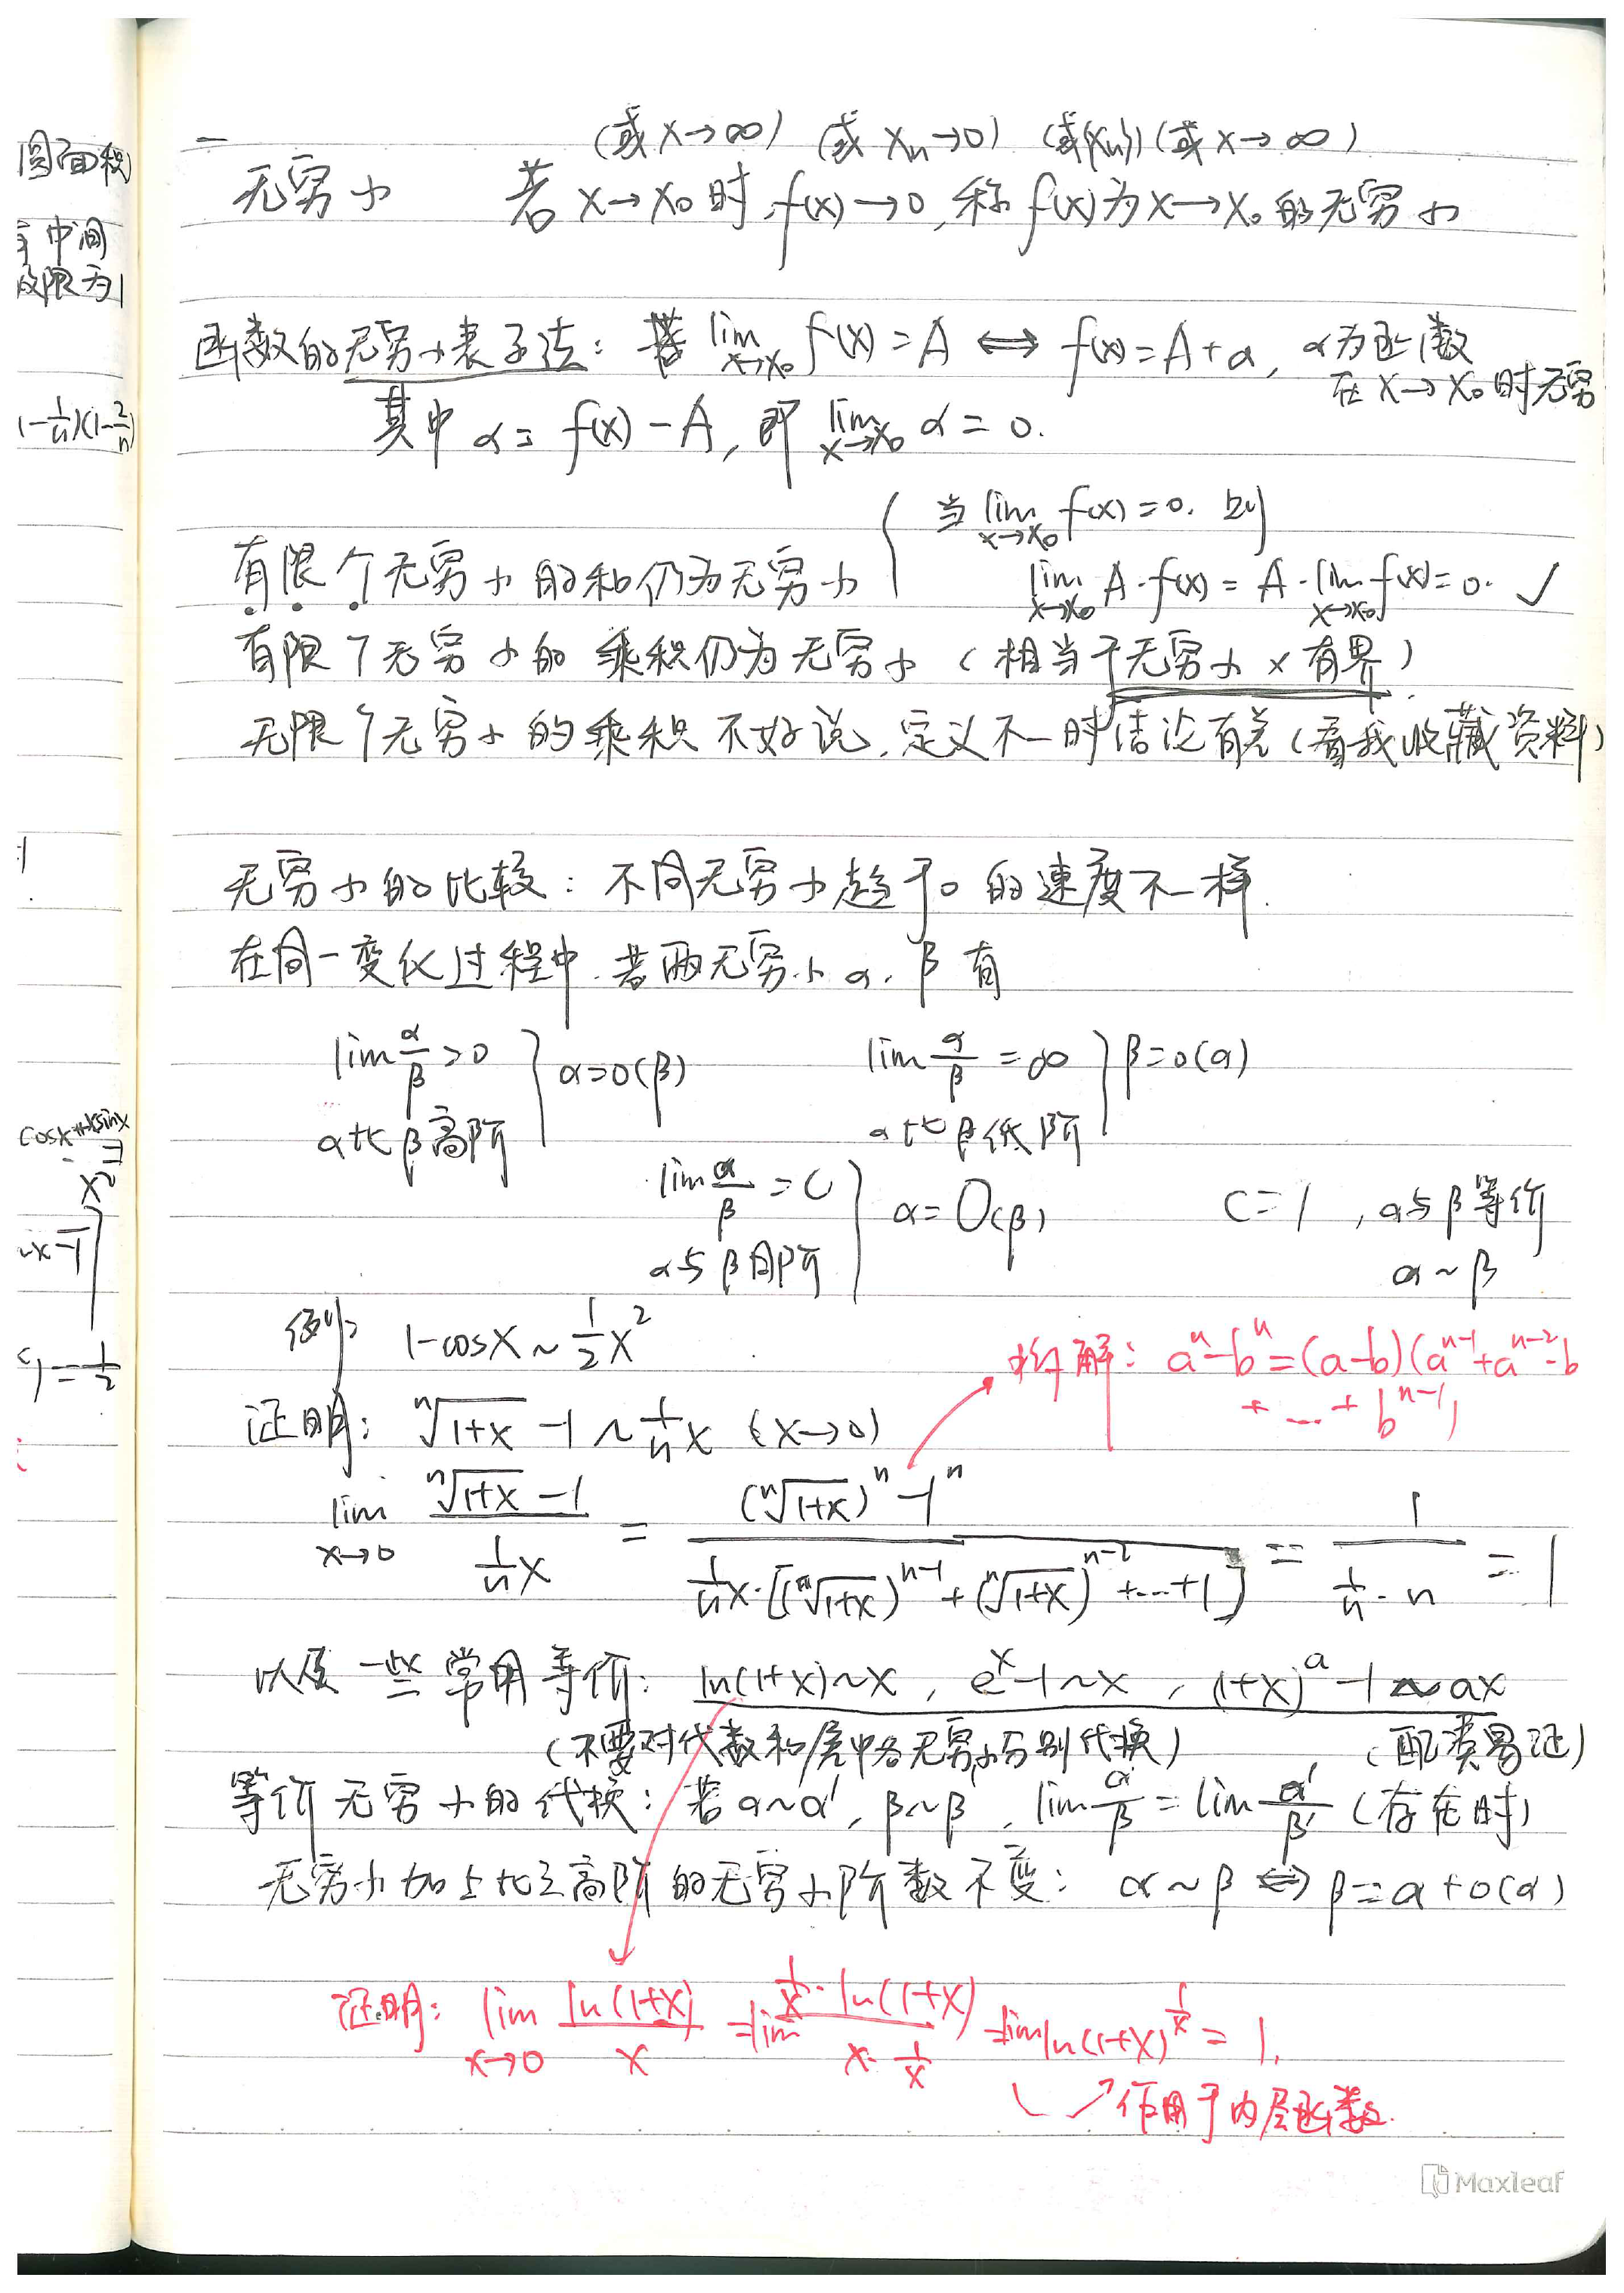 圆面积
中间
极限为1
(1-1/n)(1-2/n)
cosx+xsinx
x²
(或x→∞) (或xn→0) (或{xn}) (或x→∞)
无穷小 若x→x₀时,f(x)→0,称f(x)为x→x₀的无穷小
函数的无穷小表示法: 若 lim x→x₀ f(x)=A ⟺ f(x)=A+α, α为函数
在x→x₀时无穷
其中 α=f(x)-A, 即 lim x→x₀ α=0.
当 lim x→x₀ f(x)=0. 则
有限个无穷小的和仍为无穷小
lim x→x₀ A·f(x)=A·lim x→x₀ f(x)=0. ✓
有限个无穷小的乘积仍为无穷小 (相当于无穷小×有界)
无限个无穷小的乘积不好说,定义不一时结论有差(看我收藏资料)
无穷小的比较: 不同无穷小趋于0的速度不一样.
在同一变化过程中.若两无穷小α,β有
lim α/β=0 } α=o(β) lim α/β=∞ } β=o(α)
α比β高阶 α比β低阶
lim α/β=C } α=O(β) C=1 ,α与β等价
α与β同阶 α~β
例: 1-cosx~1/2x²
拆解: aⁿ-bⁿ=(a-b)(aⁿ⁻¹+aⁿ⁻²·b
+...+bⁿ⁻¹)
证明: ⁿ√1+x -1~1/n x (x→0)
lim x→0 (ⁿ√1+x -1)/(1/n x) = ((ⁿ√1+x)ⁿ-1ⁿ)/(1/n x·[(ⁿ√1+x)ⁿ⁻¹+(ⁿ√1+x)ⁿ⁻²+...+1]) = 1/(1/n·n) = 1
以及一些常用等价: ln(1+x)~x, eˣ-1~x, (1+x)ᵃ-1~ax
(不要对代数和层中各无穷小分别代换) (配凑易证)
等价无穷小的代换: 若α~α', β~β', lim α/β=lim α'/β' (存在时)
无穷小加上比之高阶的无穷小阶数不变: α~β ⟺ β=α+o(α)
证明: lim x→0 ln(1+x)/x =lim (1/x·ln(1+x))/(x·1/x) =lim ln(1+x)^(1/x)=1.
作用于内层函数.
Maxleaf